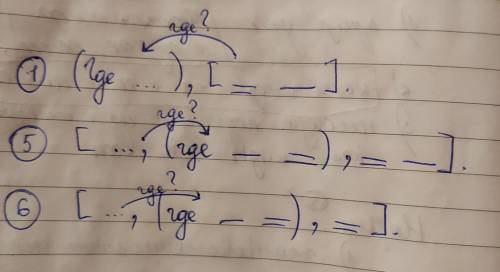 где?
① (где ...), [= —].
где?
⑤ [ ..., (где — =), = — ].
где?
⑥ [ ..., (где — =), = ].